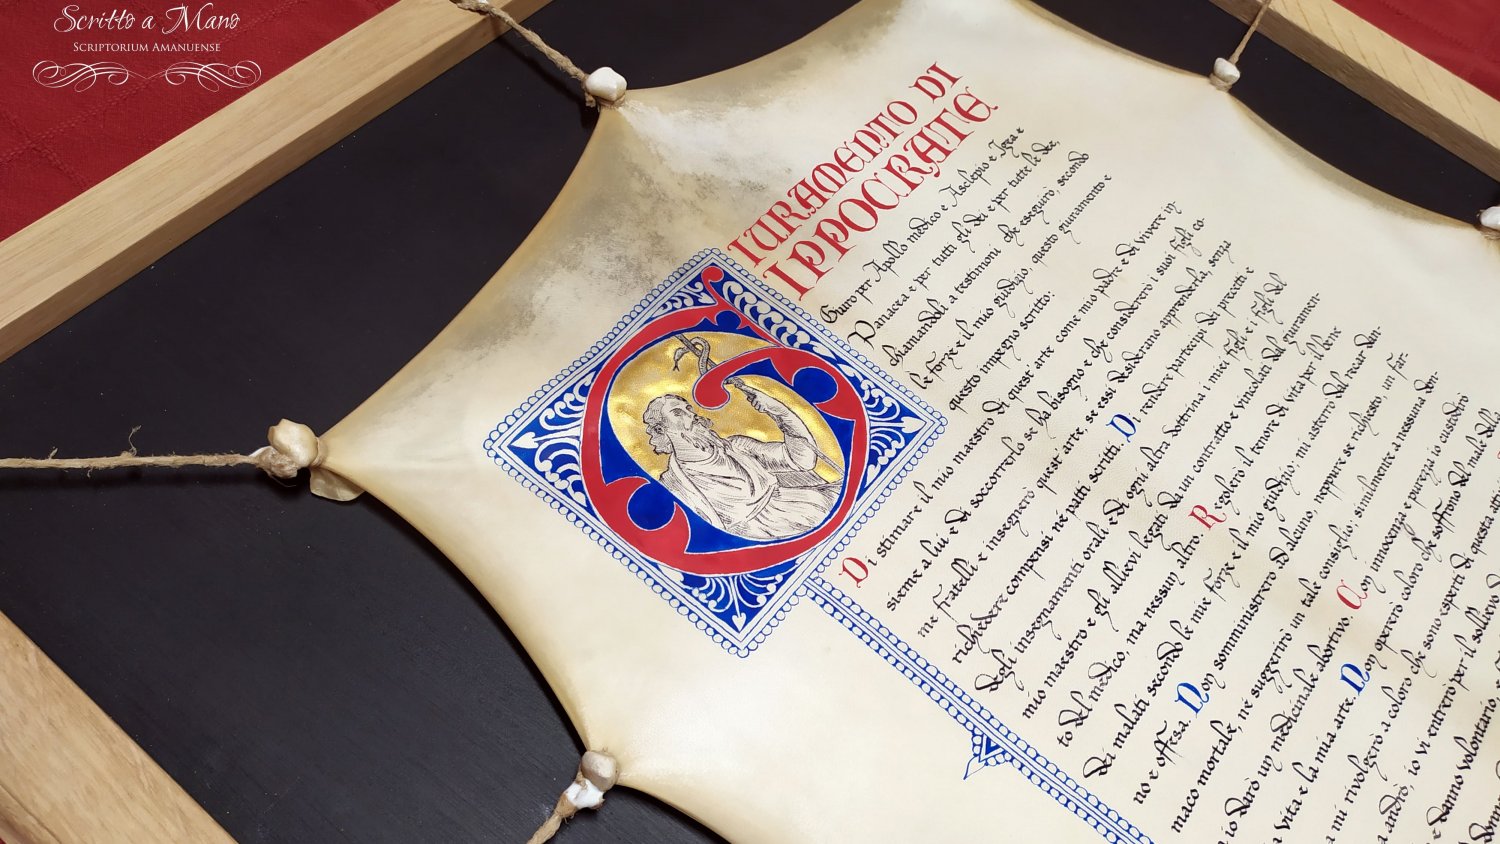 Scritto a Mano
SCRIPTORIUM AMANUENSE
IURAMENTO DI
IPPOCRATE
Giuro per Apollo medico e Asclepio e Igea e
Panacea e per tutti gli dei e per tutte le dee,
chiamandoli a testimoni che eseguirò, secondo
le forze e il mio giudizio, questo giuramento e
questo impegno scritto:
Di stimare il mio maestro di quest'arte come mio padre e di vivere in-
sieme a lui e di soccorrerlo se ha bisogno e che considererò i suoi figli co-
me fratelli e insegnerò quest'arte, se essi desiderano apprenderla, senza
richiedere compensi né patti scritti. Di rendere partecipi dei precetti e
degli insegnamenti orali e di ogni altra dottrina i miei figli e i figli del
mio maestro e gli allievi legati da un contratto e vincolati dal giuramen-
to del medico, ma nessun altro. Regolerò il tenore di vita per il bene
dei malati secondo le mie forze e il mio giudizio; mi asterrò dal recar dan-
no e offesa. Non somministrerò ad alcuno, neppure se richiesto, un far-
maco mortale, né suggerirò un tale consiglio; similmente a nessuna don-
io darò un medicinale abortivo. Con innocenza e purezza io custodirò
a vita e la mia arte. Non opererò coloro che soffrono del male della
a mi rivolgerò a coloro che sono esperti di questa atti
andrò, io vi entrerò per il sollievo d
e danno volontario, e